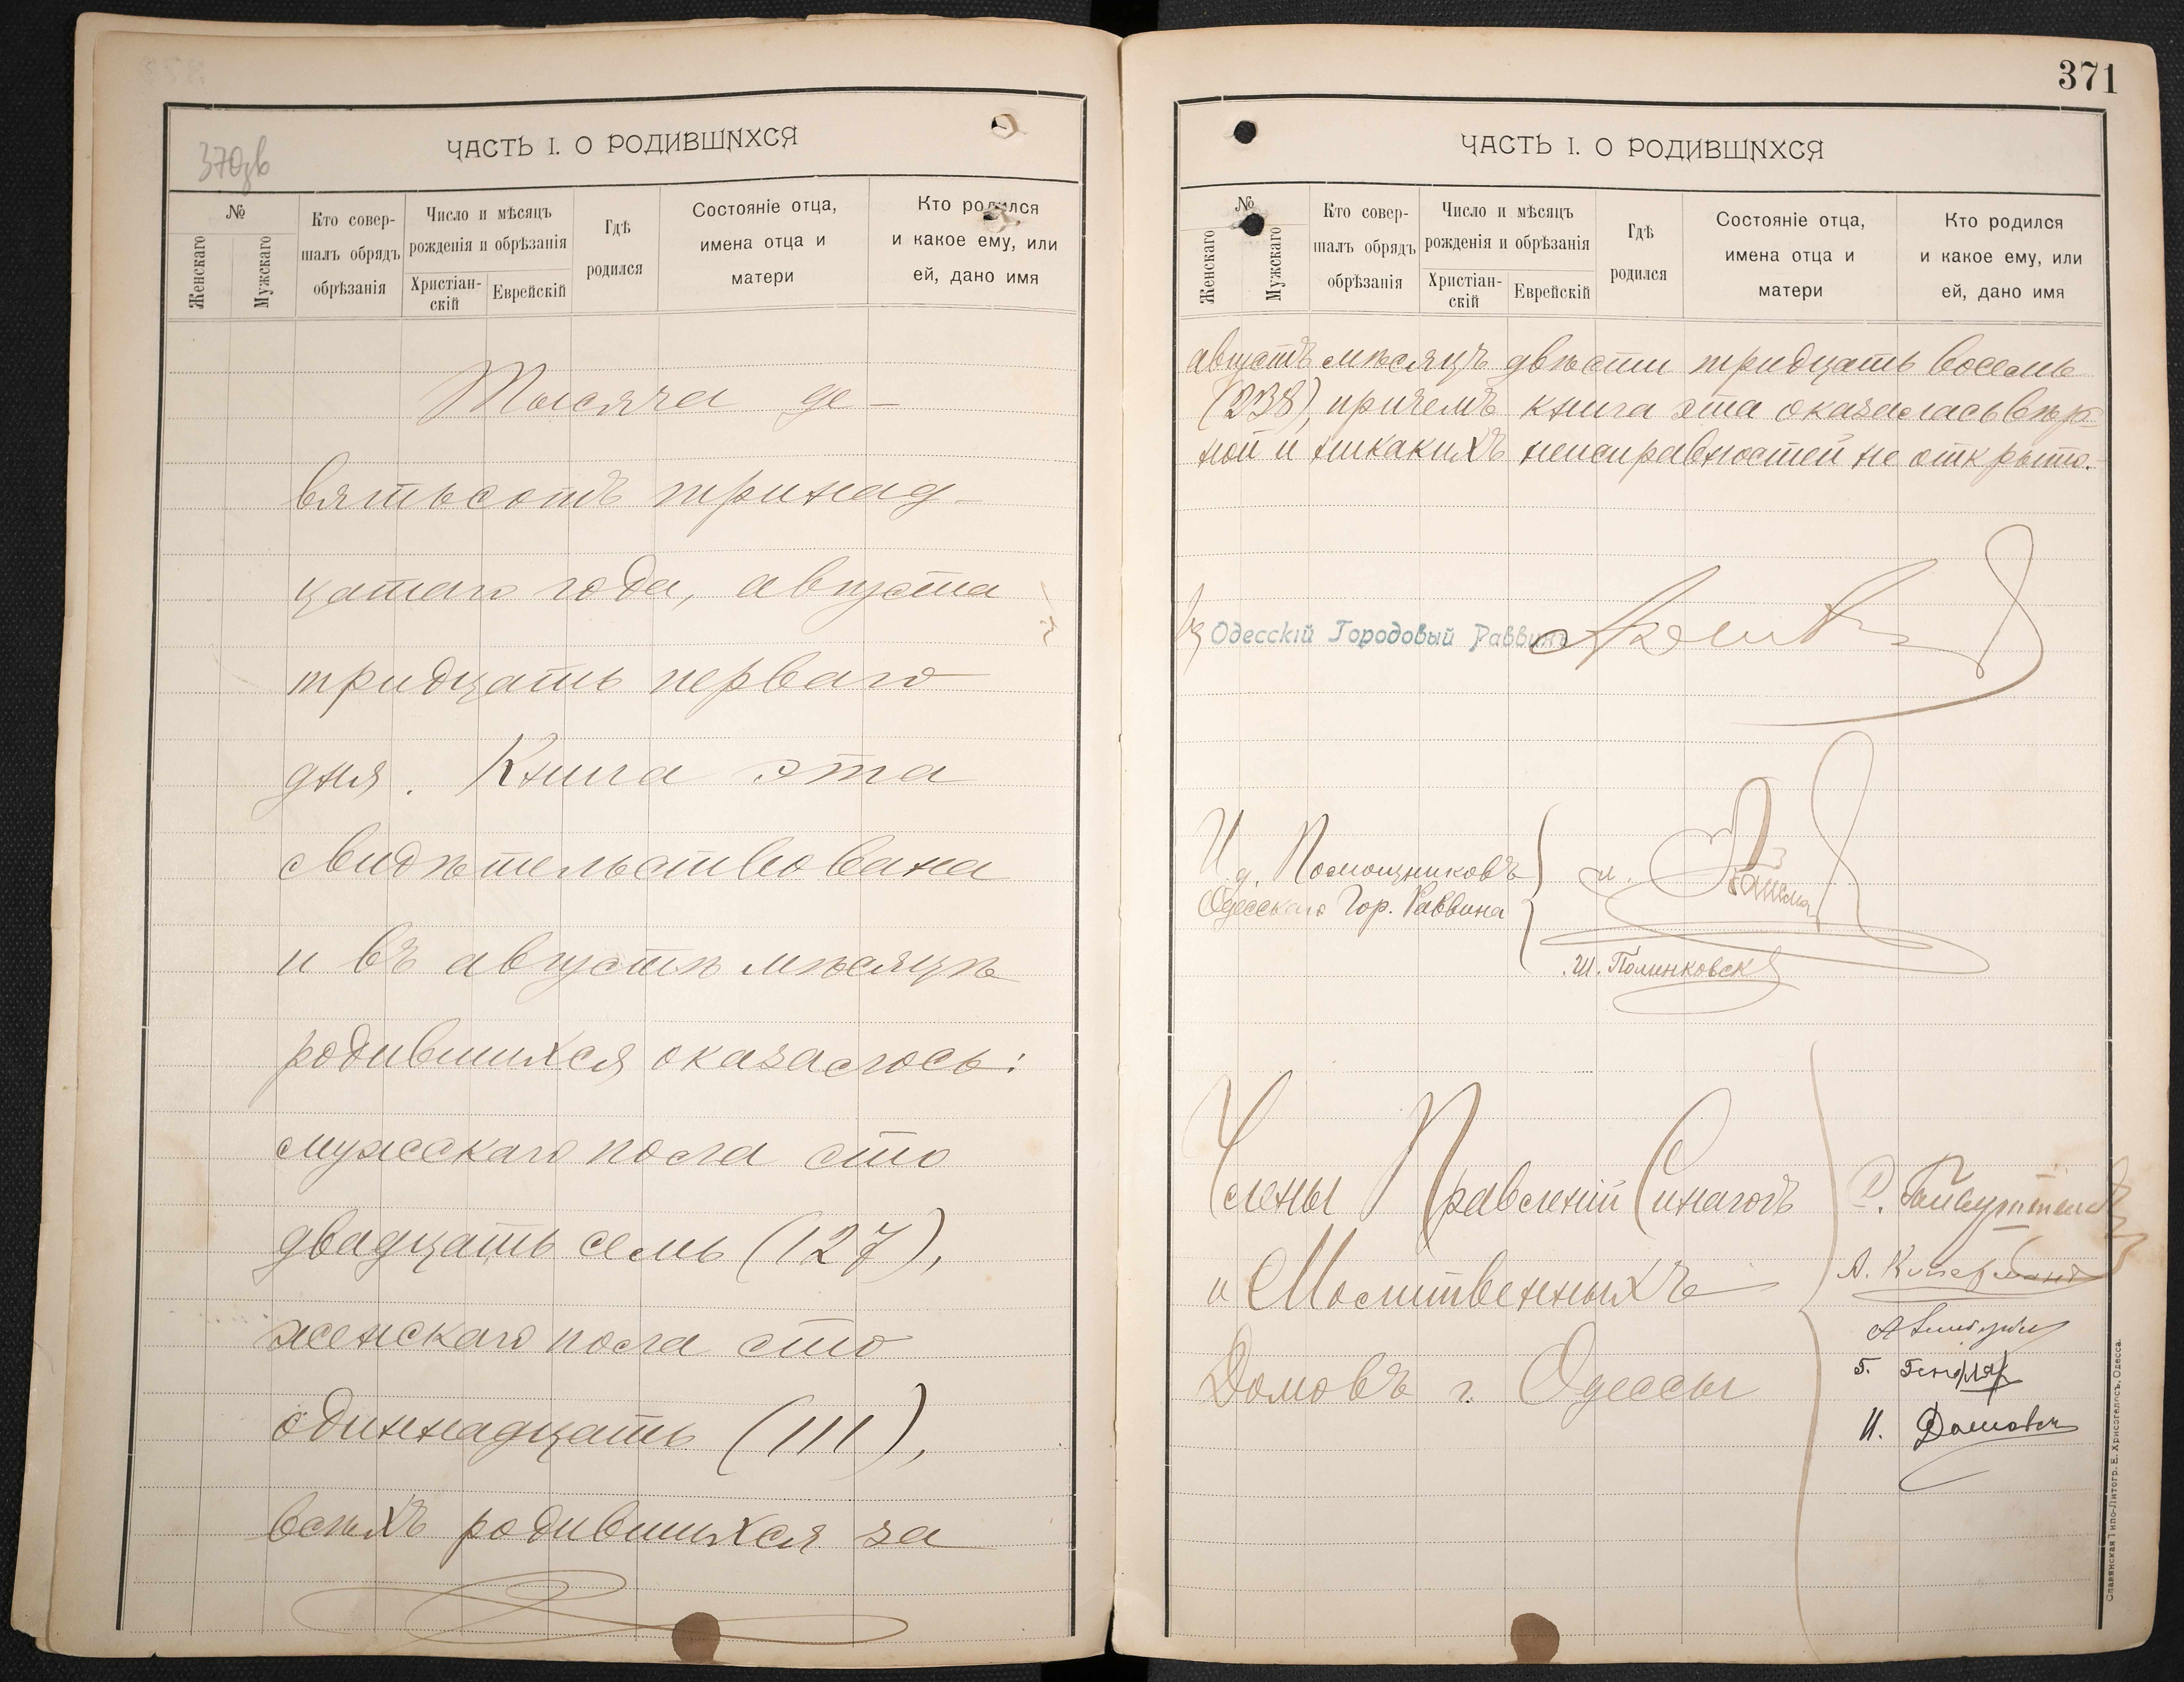 370зв
ЧАСТЬ I. О РОДИВШИХСЯ
№
Женскаго
Мужскаго
Кто совер-
шалъ обрядъ
обрѣзанія
Число и мѣсяцъ
рожденія и обрѣзанія
Христіан-
скій
Еврейскій
Гдѣ
родился
Состояніе отца,
имена отца и
матери
Кто родился
и какое ему, или
ей, дано имя
Тысяча де-
вятьсотъ тринад-
цатаго года, августа
тридцать перваго
дня. Книга эта
свидѣтельствована
и въ августѣ мѣсяцѣ
родившихся оказалось:
мужескаго пола сто
двадцать семь (127),
женскаго пола сто
одиннадцать (111),
всѣхъ родившихся за
371
ЧАСТЬ I. О РОДИВШИХСЯ
№
Женскаго
Мужскаго
Кто совер-
шалъ обрядъ
обрѣзанія
Число и мѣсяцъ
рожденія и обрѣзанія
Христіан-
скій
Еврейскій
Гдѣ
родился
Состояніе отца,
имена отца и
матери
Кто родился
и какое ему, или
ей, дано имя
августъ мѣсяцъ двѣсти тридцать восемь
(238), причемъ книга эта оказалась вѣр-
ной и никакихъ неисправностей не открыто.
Одесскій Городовый Раввинъ
И. д. Помощниковъ
Одесскаго Гор. Раввина
Ш. Полинковск
Члены Правленій Синагогъ
и Молитвенныхъ
Домовъ г. Одессы
А. Киперманъ
Г. Гендлер
И.
Славянская Типо-Литогр. Е. Хрисогелосъ, Одесса.